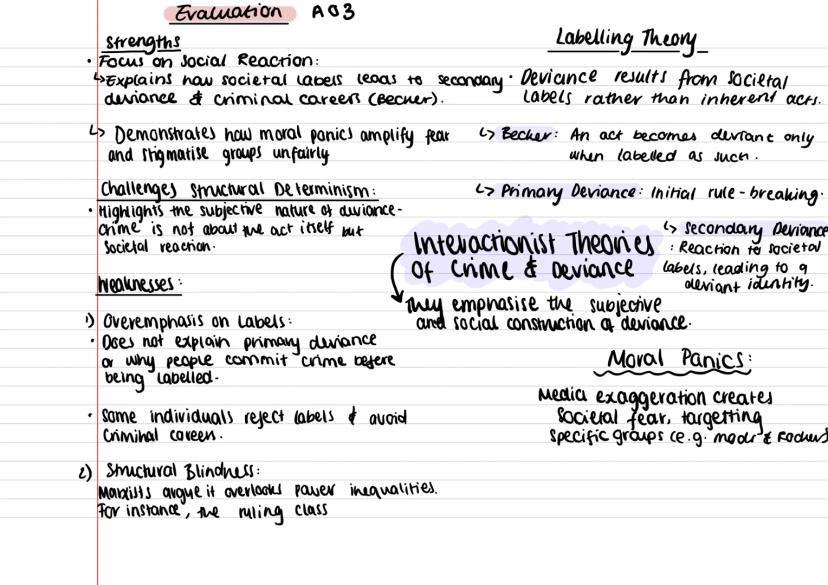 Evaluation AO3
Strengths
• Focus on Social Reaction:
↳ Explains how societal labels leads to secondary
deviance & criminal careers (Becker).
↳ Demonstrates how moral panics amplify fear
and stigmatise groups unfairly
Challenges Structural Determinism:
• Highlights the subjective nature of deviance-
crime is not about the act itself but
societal reaction.
Weaknesses:
1) Overemphasis on Labels:
• Does not explain primary deviance
or why people commit crime before
being labelled.
• Some individuals reject labels & avoid
criminal careers.
2) Structural Blindness:
Marxists argue it overlooks power inequalities.
For instance, the ruling class
Labelling Theory
• Deviance results from societal
labels rather than inherent acts.
↳ Becker: An act becomes deviant only
when labelled as such.
↳ Primary Deviance: Initial rule-breaking.
↳ Secondary Deviance
: Reaction to societal
labels, leading to a
deviant identity.
Interactionist Theories
of Crime & Deviance
They emphasise the subjective
and social construction of deviance.
Moral Panics:
Media exaggeration creates
societal fear, targetting
specific groups (e.g. mods & Rockers